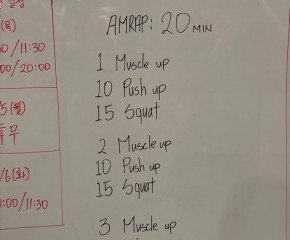 (목)
00/11:30
00/20:00
5(월)
휴무
/6(화)
0:00/11:30
AMRAP: 20 MIN
1 Muscle up
10 Push up
15 Squat
2 Muscle up
10 Push up
15 Squat
3 Muscle up